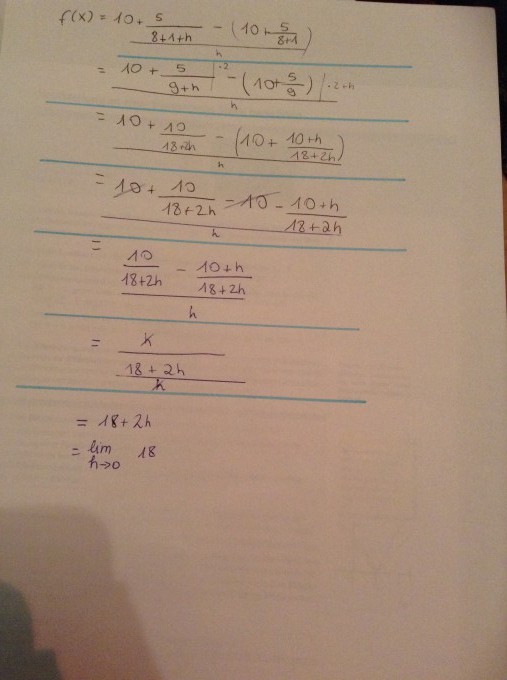 f(x) = 10 + 5/(8+1+h) - (10 + 5/(8+1))
h
= 10 + 5/(9+h) |·2 - (10 + 5/9) |·2+h
h
= 10 + 10/(18+2h) - (10 + (10+h)/(18+2h))
h
= 10 + 10/(18+2h) - 10 - (10+h)/(18+2h)
h
= 10/(18+2h) - (10+h)/(18+2h)
h
= h
18 + 2h
h
= 18 + 2h
= lim 18
h→0